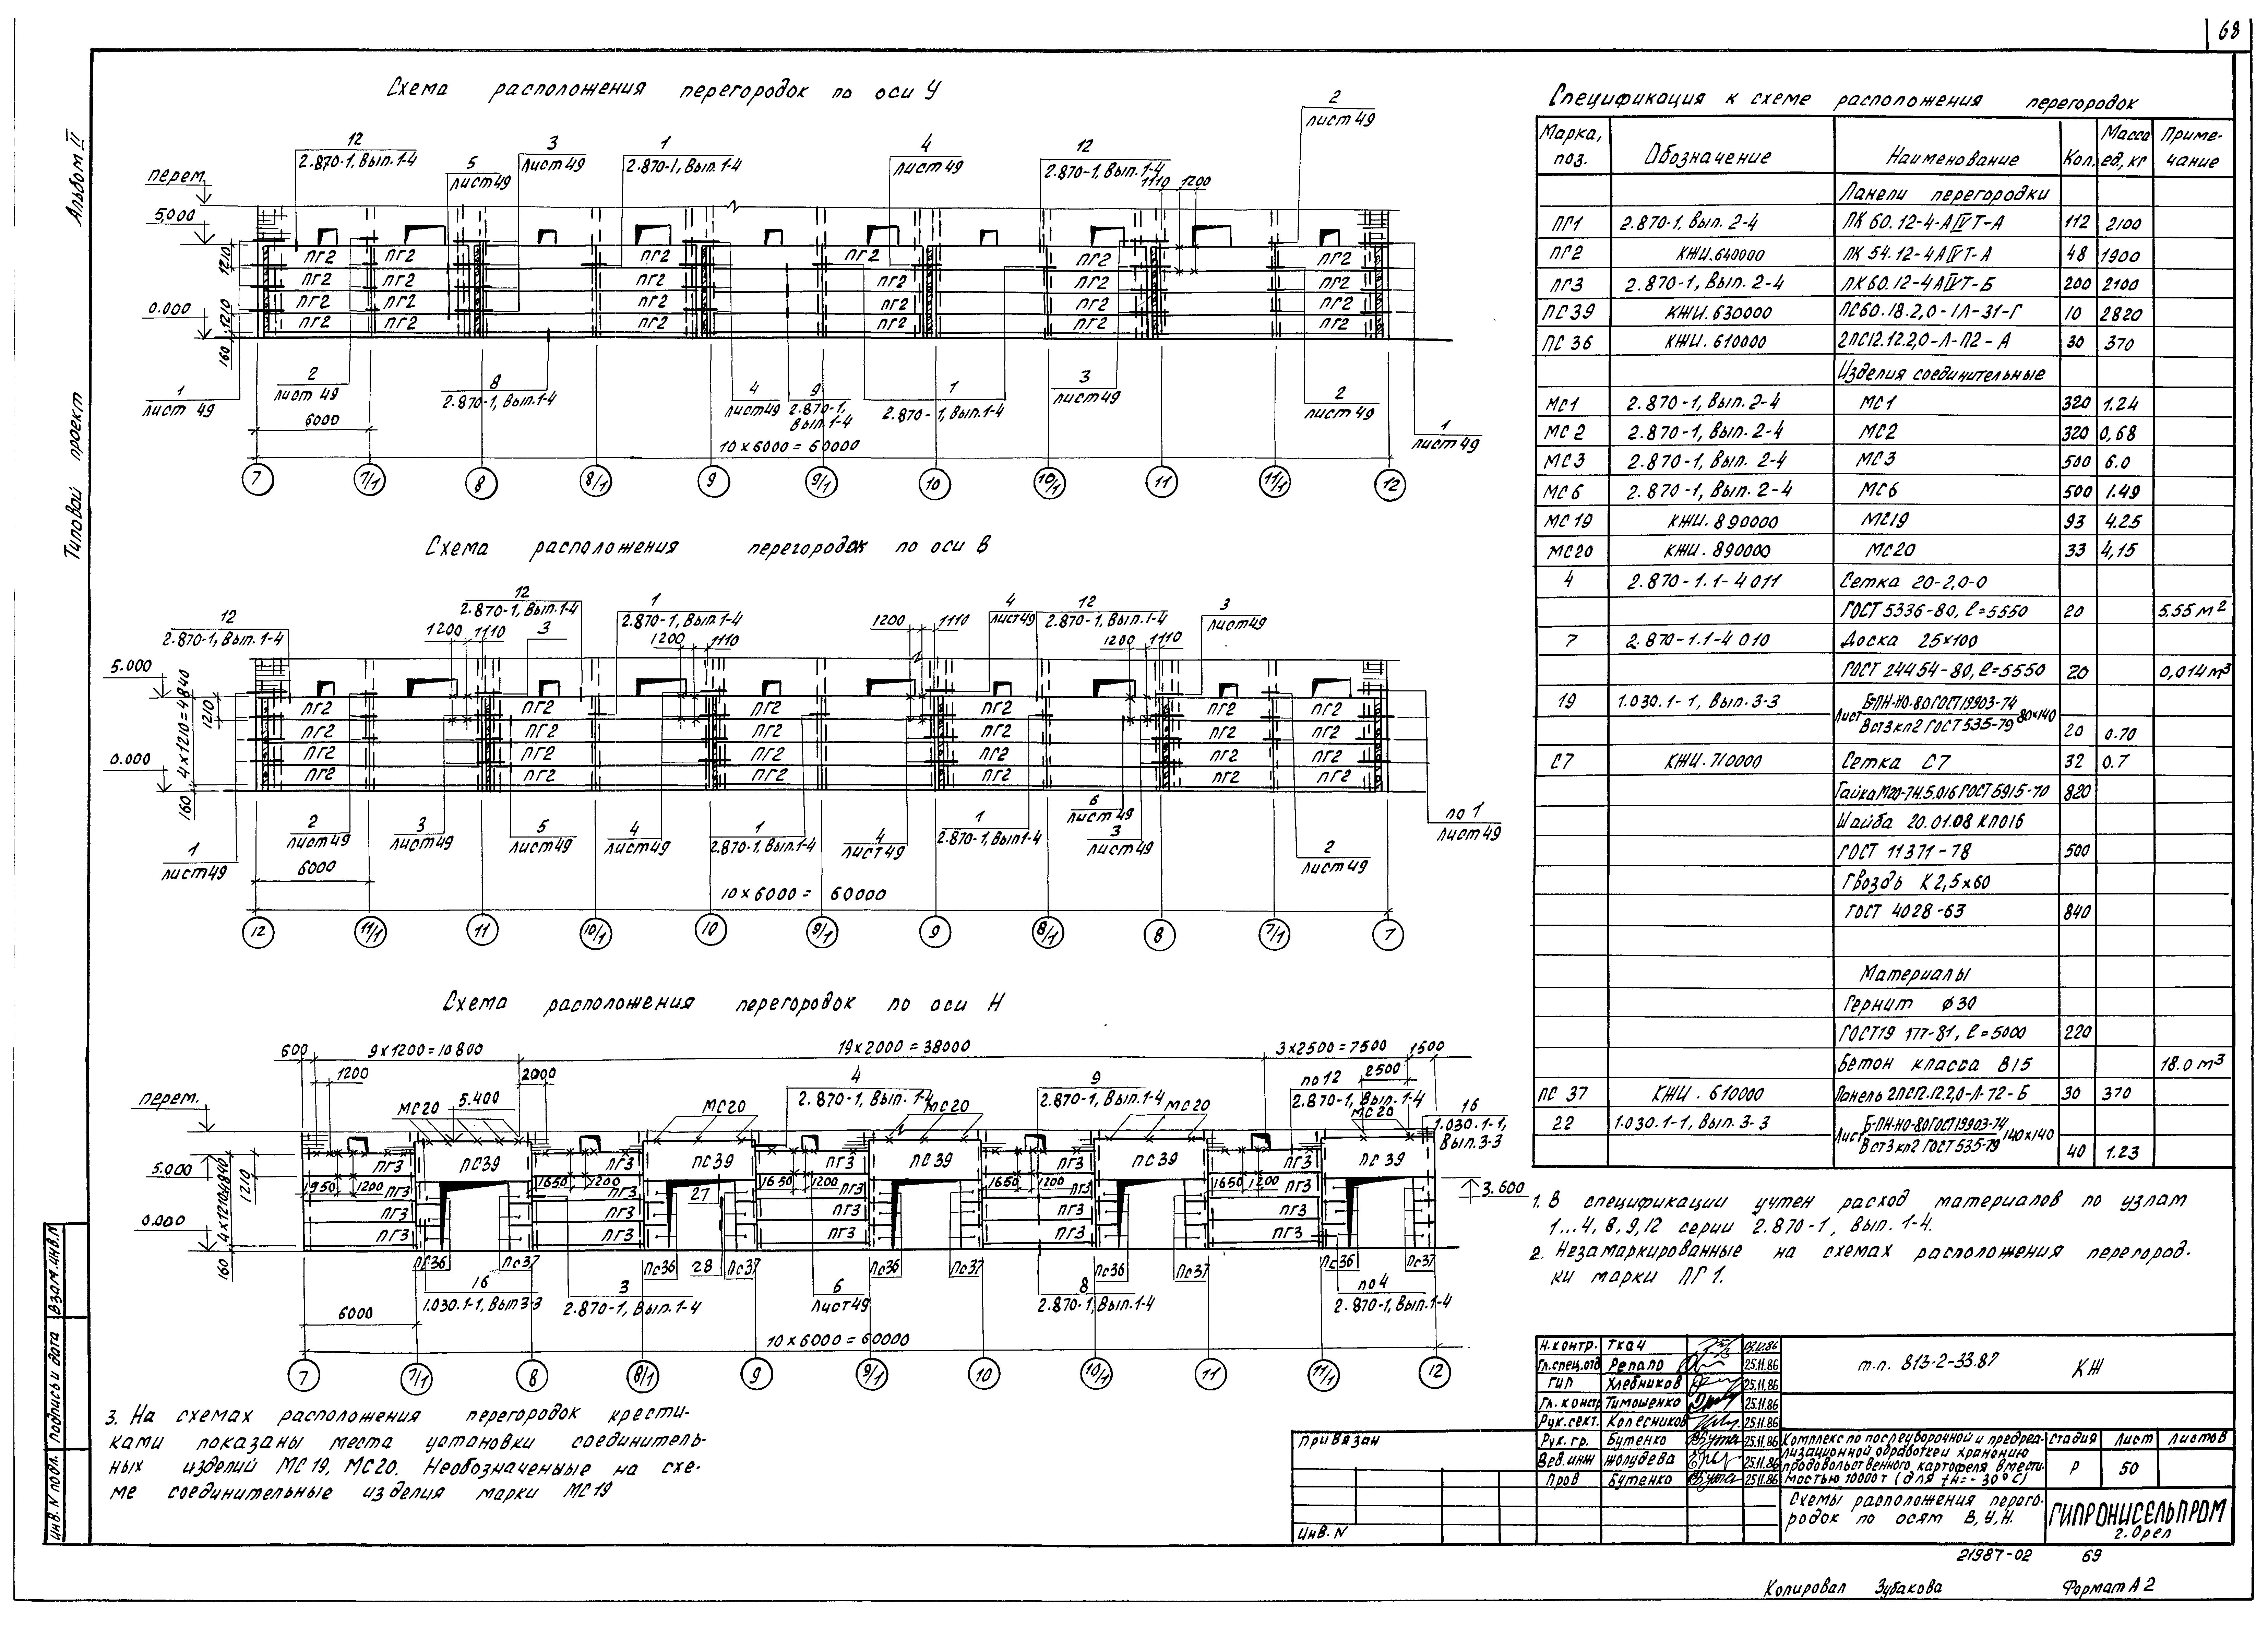 68
Альбом II
Типовой проект
Схема расположения перегородок по оси У
12
2.870-1, Вып. 1-4
5
лист 49
3
лист 49
1
2.870-1, Вып. 1-4
4
лист 49
12
2.870-1, Вып. 1-4
1110 1200
2
лист 49
перем.
5,000
0.000
1210
1210
160
ПГ2 ПГ2 ПГ2 ПГ2 ПГ2 ПГ2
ПГ2 ПГ2 ПГ2 ПГ2 ПГ2 ПГ2
ПГ2 ПГ2 ПГ2 ПГ2 ПГ2 ПГ2
ПГ2 ПГ2 ПГ2 ПГ2 ПГ2 ПГ2
1
лист 49
2
лист 49
8
2.870-1, Вып. 1-4
4
лист 49
9
2.870-1,
Вып. 1-4
1
2.870-1, Вып. 1-4
3
лист 49
2
лист 49
1
лист 49
6000
10 x 6000 = 60000
7 7/1 8 8/1 9 9/1 10 10/1 11 11/1 12
Схема расположения перегородок по оси В
12
2.870-1, Вып. 1-4
12
2.870-1, Вып. 1-4
1200 1110
3
1
2.870-1, Вып. 1-4
1200 1110
1200 1110
4
лист 49
12
2.870-1, Вып. 1-4
1200 1110
3
лист 49
5.000
0.000
4x1210=4840
1210
160
ПГ2 ПГ2 ПГ2 ПГ2 ПГ2 ПГ2
ПГ2 ПГ2 ПГ2 ПГ2 ПГ2 ПГ2
ПГ2 ПГ2 ПГ2 ПГ2 ПГ2 ПГ2
ПГ2 ПГ2 ПГ2 ПГ2 ПГ2 ПГ2
1
лист 49
2
лист 49
3
лист 49
5
лист 49
4
лист 49
1
2.870-1, Вып. 1-4
4
лист 49
1
2.870-1, Вып 1-4
6
лист 49
3
лист 49
2
лист 49
по 1
лист 49
6000
10 x 6000 = 60000
12 11/1 11 10/1 10 9/1 9 8/1 8 7/1 7
Схема расположения перегородок по оси Н
600 9 x 1200 = 10800 19 x 2000 = 38000 3 x 2500 = 7500 1500
1200 2000 2500
перем.
МС20 5.400
МС20
4
2.870-1, Вып. 1-4
МС20
9
2.870-1, Вып. 1-4
МС20
по 12
2.870-1, Вып. 1-4
МС20
16
1.030.1-1,
Вып. 3-3
5.000
0.000
4x1210=4840
1210
160
3.600
ПГ3 ПС39 ПГ3 ПС39 ПГ3 ПС39 ПГ3 ПС39 ПГ3 ПС39
1950 1200 ПГ3 1650 1200 ПГ3 27 1650 1200 ПГ3 1650 1200 ПГ3 1650 1200 ПГ3
ПГ3 ПГ3 ПГ3 ПГ3 ПГ3
ПГ3 ПГ3 ПГ3 ПГ3 ПГ3
ПС36 ПС37 ПС36 28 ПС37 ПС36 ПС37 ПС36 ПС37 ПС36 ПС37
16
1.030.1-1, Вып 3-3
3
2.870-1, Вып. 1-4
6
Лист 49
8
2.870-1, Вып. 1-4
по 4
2.870-1, Вып. 1-4
6000
10 x 6000 = 60000
7 7/1 8 8/1 9 9/1 10 10/1 11 11/1 12
3. На схемах расположения перегородок крести-
ками показаны места установки соединитель-
ных изделий МС 19, МС20. Необозначенные на схе-
ме соединительные изделия марки МС 19
Спецификация к схеме расположения перегородок
Марка, поз. Обозначение Наименование Кол. Масса ед, кг Приме-чание
Панели перегородки
ПГ1 2.870-1, Вып. 2-4 ПК 60.12-4-АIVТ-А 112 2100
ПГ2 КЖИ.640000 ПК 54.12-4АIVТ-А 48 1900
ПГ3 2.870-1, Вып. 2-4 ПК60.12-4АIVТ-Б 200 2100
ПС39 КЖИ. 630000 ПС60.18.2,0-1Л-31-Г 10 2820
ПС 36 КЖИ. 610000 2ПС12.12.2,0-Л-П2-А 30 370
Изделия соединительные
МС1 2.870-1, Вып. 2-4 МС1 320 1.24
МС 2 2.870-1, Вып. 2-4 МС2 320 0,68
МС 3 2.870-1, Вып. 2-4 МС3 500 6.0
МС 6 2.870-1, Вып. 2-4 МС6 500 1.49
МС 19 КЖИ. 890000 МС19 93 4.25
МС20 КЖИ. 890000 МС20 33 4,15
4 2.870-1.1-4 011 Сетка 20-2,0-0
ГОСТ 5336-80, ℓ=5550 20 5.55 м²
7 2.870-1.1-4 010 Доска 25x100
ГОСТ 24454-80, ℓ=5550 20 0,014 м³
19 1.030.1-1, Вып. 3-3 Лист Б-ПН-НО-8.0 ГОСТ 19903-74
Вст3 кп2 ГОСТ 535-79 80x140 20 0.70
С7 КЖИ. 710000 Сетка С7 32 0.7
Гайка М20-7Н.5.016 ГОСТ 5915-70 820
Шайба 20.01.08 КП016
ГОСТ 11371-78 500
Гвоздь К 2,5x60
ГОСТ 4028-63 840
Материалы
Гернит ф 30
ГОСТ19 177-81, ℓ=5000 220
Бетон класса В15 18.0 м³
ПС 37 КЖИ. 610000 Панель 2ПС12.12.2,0-Л-72-Б 30 370
22 1.030.1-1, Вып. 3-3 Лист Б-ПН-НО-8.0 ГОСТ 19903-74
Вст3 кп2 ГОСТ 535-79 140x140 40 1.23
1. В спецификации учтен расход материалов по узлам
1...4, 8, 9, 12 серии 2.870-1, вып. 1-4.
2. Незамаркированные на схемах расположения перегород-
ки марки ПГ 1.
Н.контр. Ткач 03.12.86
Гл.спец.отд Репало 25.11.86
ГИП Хлебников 25.11.86
Гл. констр Тимошенко 25.11.86
Рук.сект. Колесников 25.11.86
Рук. гр. Бутенко 25.11.86
Вед.инж Жолудева 25.11.86
Пров Бутенко 25.11.86
т.п. 813-2-33.87 КЖ
Комплекс по послеуборочной и предреа-
лизационной обработке и хранению
продовольственного картофеля вмести-
мостью 10000 т (для tн=-30°С)
Стадия Лист Листов
Р 50
Схемы расположения перего-
родок по осям В, У, Н.
ГИПРОНИСЕЛЬПРОМ
г. Орел
Привязан
Инв. N
Инв. N подл. Подпись и дата Взам. инв. N
21987-02 69
Копировал Зубакова Формат А2